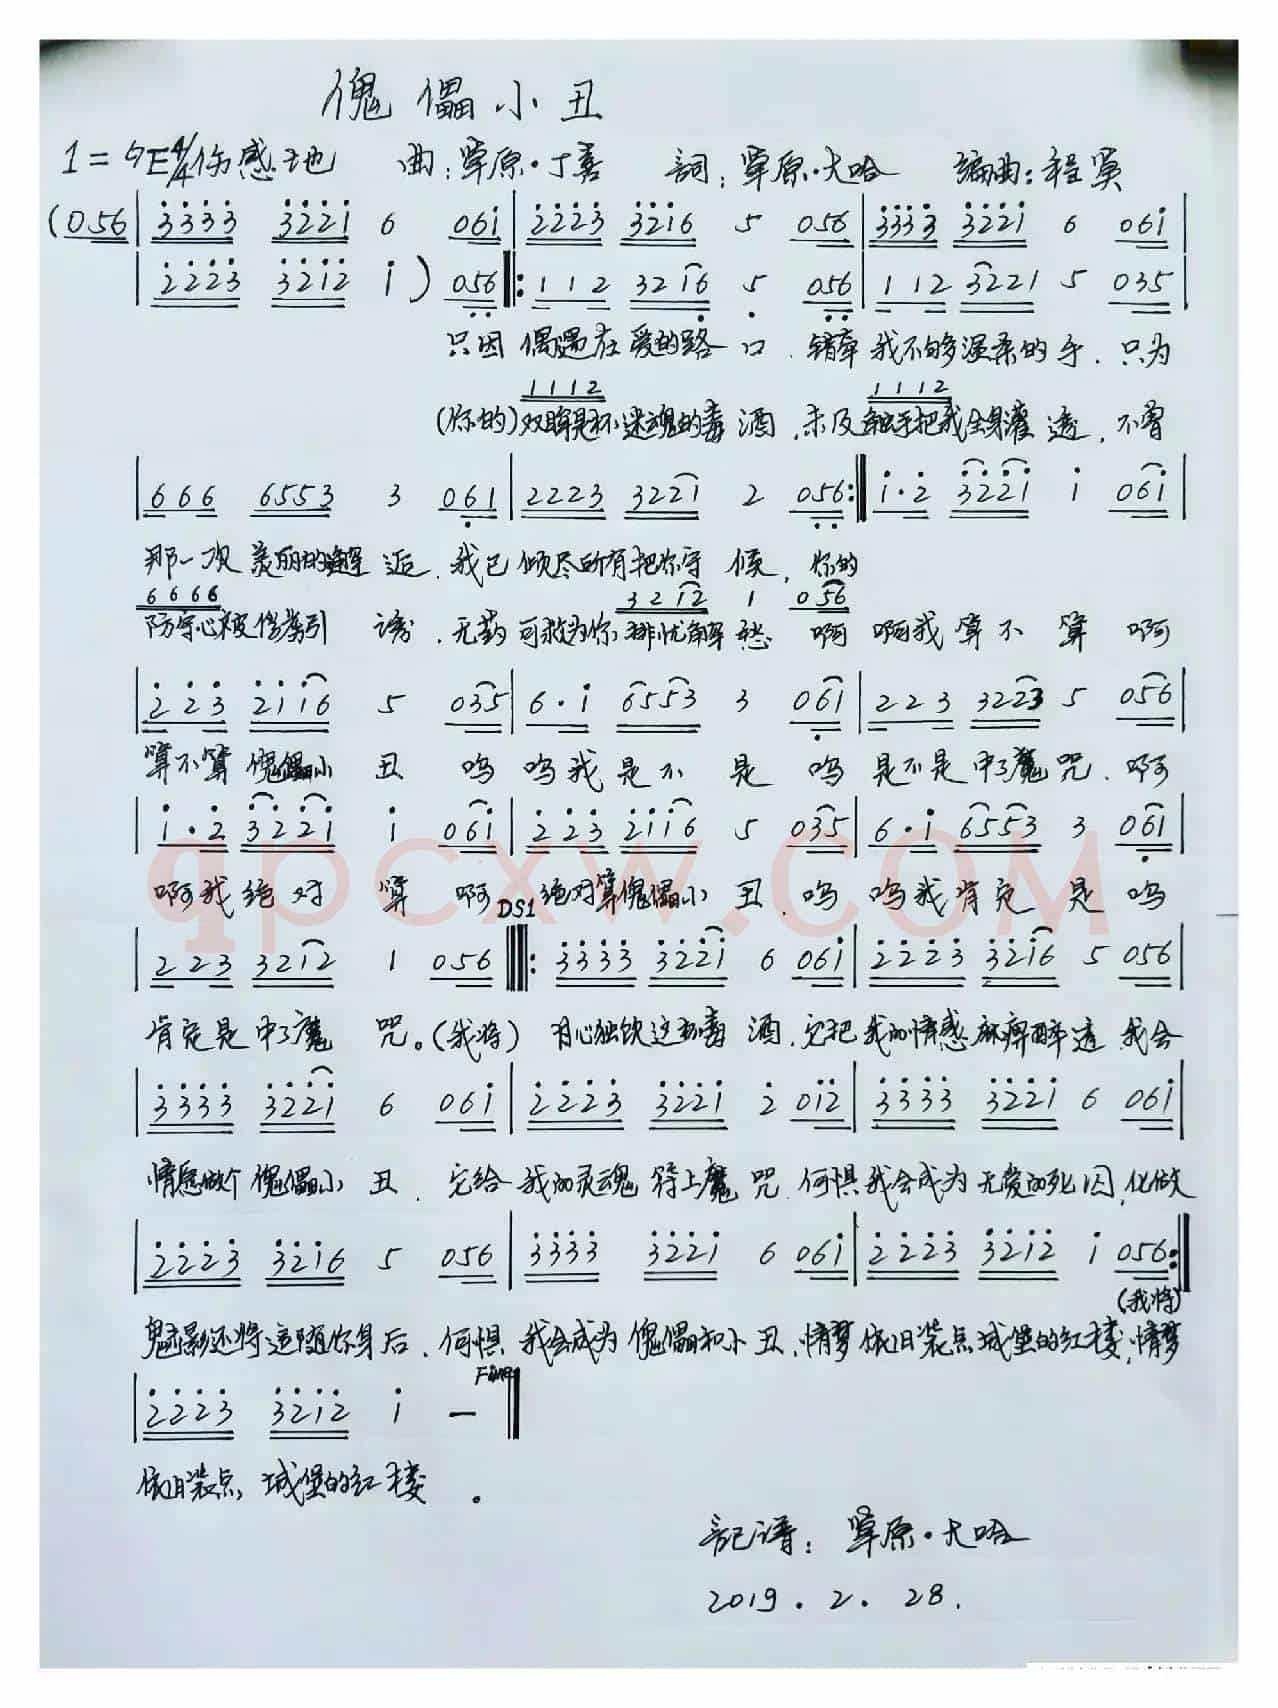 傀儡小丑
1=♭E 4/4 伤感地 曲:草原·丁喜 詞:草原·大哈 编曲:程寞
(056|3333 3221 6 061|2223 3216 5 056|3333 3221 6 061|
|2223 3212 1)056‖:112 3216 5 056|112 3221 5 035|
只因 偶遇在爱的路口.错牵我不够温柔的手.只为
1112 1112
(你的)双眸是杯迷魂的毒酒,未及触手把我全身灌透,不曾
|666 6553 3 061|2223 3221 2 056:‖1·2 3221 1 061|
那一次美丽的邂逅.我已倾尽所有把你守候,你的
6666 3212 1 056
防守心被你勾引诱,无药可救为你排忧解愁 啊 啊我算不算 啊
|223 2116 5 035|6·1 6553 3 061|223 3223 5 056|
算不算傀儡小丑 呜 呜我是不是 呜 是不是中了魔咒.啊
|1·2 3221 1 061|223 2116 5 035|6·1 6553 3 061|
啊我绝对算 啊 绝对算傀儡小丑.呜 呜我肯定是 呜
DS1
|223 3212 1 056‖:3333 3221 6 061|2223 3216 5 056|
肯定是中了魔咒。(我将) 甘心独饮这杯毒酒,它把我的情感麻痹醉透 我会
|3333 3221 6 061|2223 3221 2 012|3333 3221 6 061|
情愿做个傀儡小丑.它给我的灵魂符上魔咒.何惧我会成为无爱的死囚,化做
|2223 3216 5 056|3333 3221 6 061|2223 3212 1 056:‖
(我将)
魅影还将追随你身后.何惧 我会成为傀儡和小丑,情梦依旧装点城堡的红楼,情梦
Fine
|2223 3212 1 —‖
依旧装点 城堡的红楼。
記谱:草原·大哈
2019.2.28.
qpcxw.com